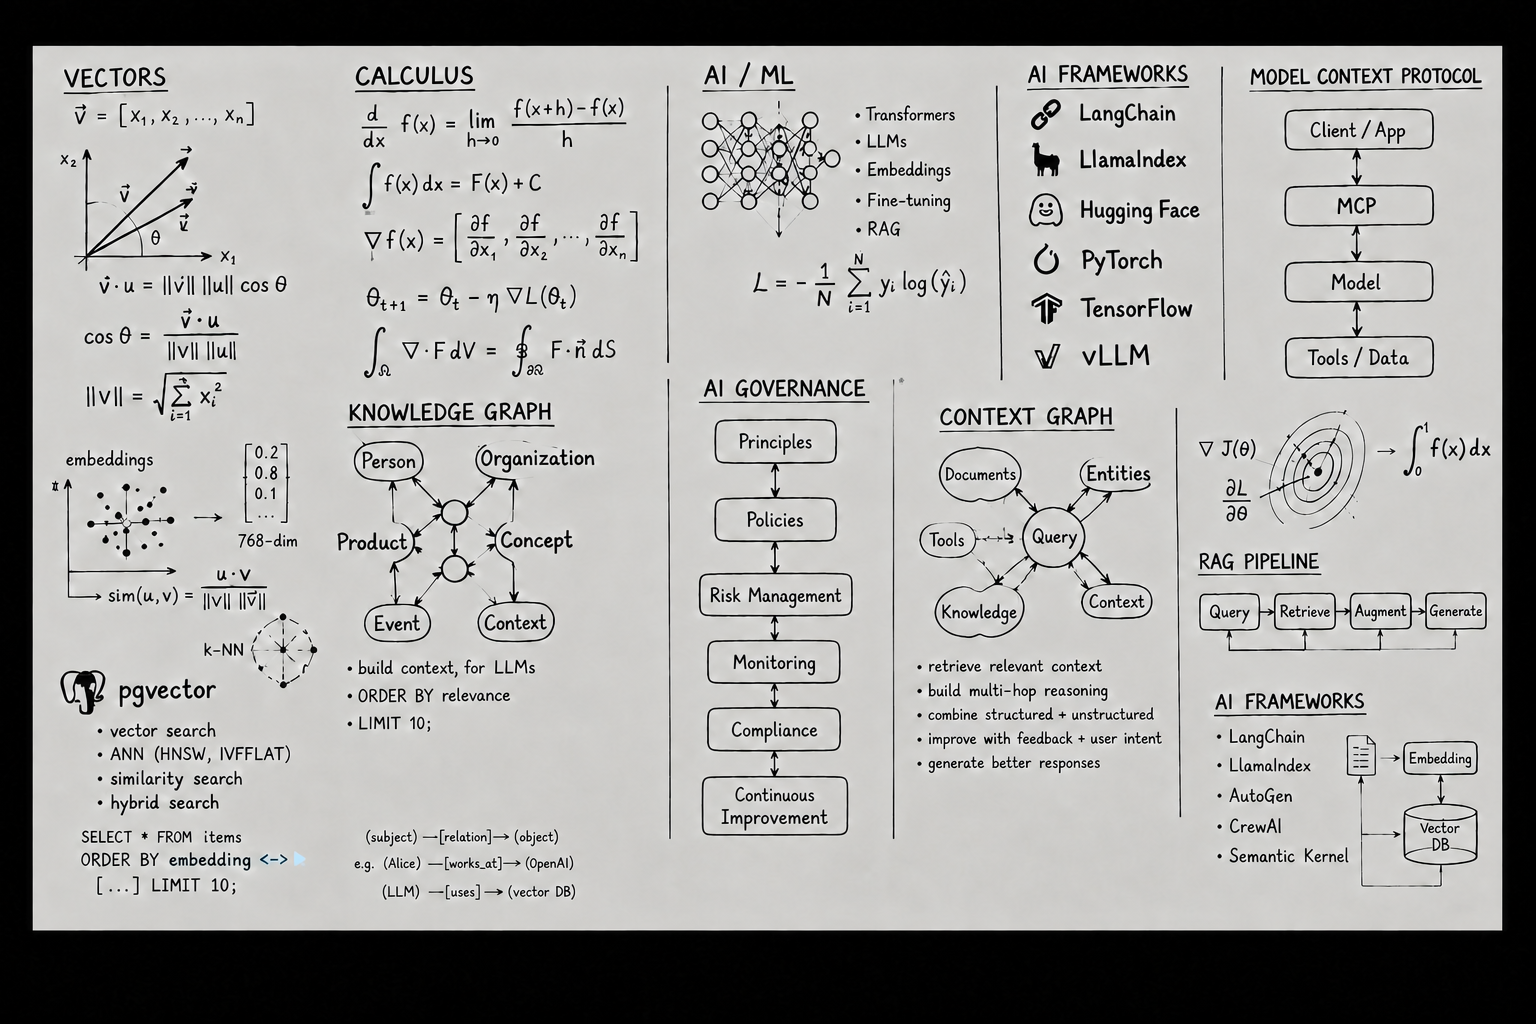 VECTORS
v⃗ = [x₁, x₂, ..., xₙ]
x₂
v⃗
θ
x₁
v⃗ · u = ||v|| ||u|| cos θ
cos θ = v⃗ · u / ||v|| ||u||
||v|| = √ Σ i=1 xᵢ²
embeddings
0.2
0.8
0.1
...
768-dim
sim(u, v) = u · v / ||v|| ||v⃗||
k-NN
pgvector
• vector search
• ANN (HNSW, IVFFLAT)
• similarity search
• hybrid search
SELECT * FROM items
ORDER BY embedding <->
[...] LIMIT 10;
CALCULUS
d/dx f(x) = lim h→0 f(x+h) − f(x) / h
∫ f(x) dx = F(x) + C
∇f(x) = [∂f/∂x₁, ∂f/∂x₂, ..., ∂f/∂xₙ]
θₜ₊₁ = θₜ − η ∇L(θₜ)
∫Ω ∇ · F dV = ∮∂Ω F · n⃗ dS
KNOWLEDGE GRAPH
Person
Organization
Product
Concept
Event
Context
• build context, for LLMs
• ORDER BY relevance
• LIMIT 10;
(subject) —[relation]→ (object)
e.g. (Alice) —[works_at]→ (OpenAI)
(LLM) —[uses]→ (vector DB)
AI / ML
• Transformers
• LLMs
• Embeddings
• Fine-tuning
• RAG
L = − 1/N Σ i=1 N yᵢ log(ŷᵢ)
AI GOVERNANCE
Principles
Policies
Risk Management
Monitoring
Compliance
Continuous
Improvement
AI FRAMEWORKS
LangChain
LlamaIndex
Hugging Face
PyTorch
TensorFlow
vLLM
MODEL CONTEXT PROTOCOL
Client / App
MCP
Model
Tools / Data
CONTEXT GRAPH
Documents
Entities
Tools
Query
Knowledge
Context
• retrieve relevant context
• build multi-hop reasoning
• combine structured + unstructured
• improve with feedback + user intent
• generate better responses
∇ J(θ)
∂L/∂θ
→ ∫₀¹ f(x) dx
RAG PIPELINE
Query
Retrieve
Augment
Generate
AI FRAMEWORKS
• LangChain
• LlamaIndex
• AutoGen
• CrewAI
• Semantic Kernel
Embedding
Vector
DB